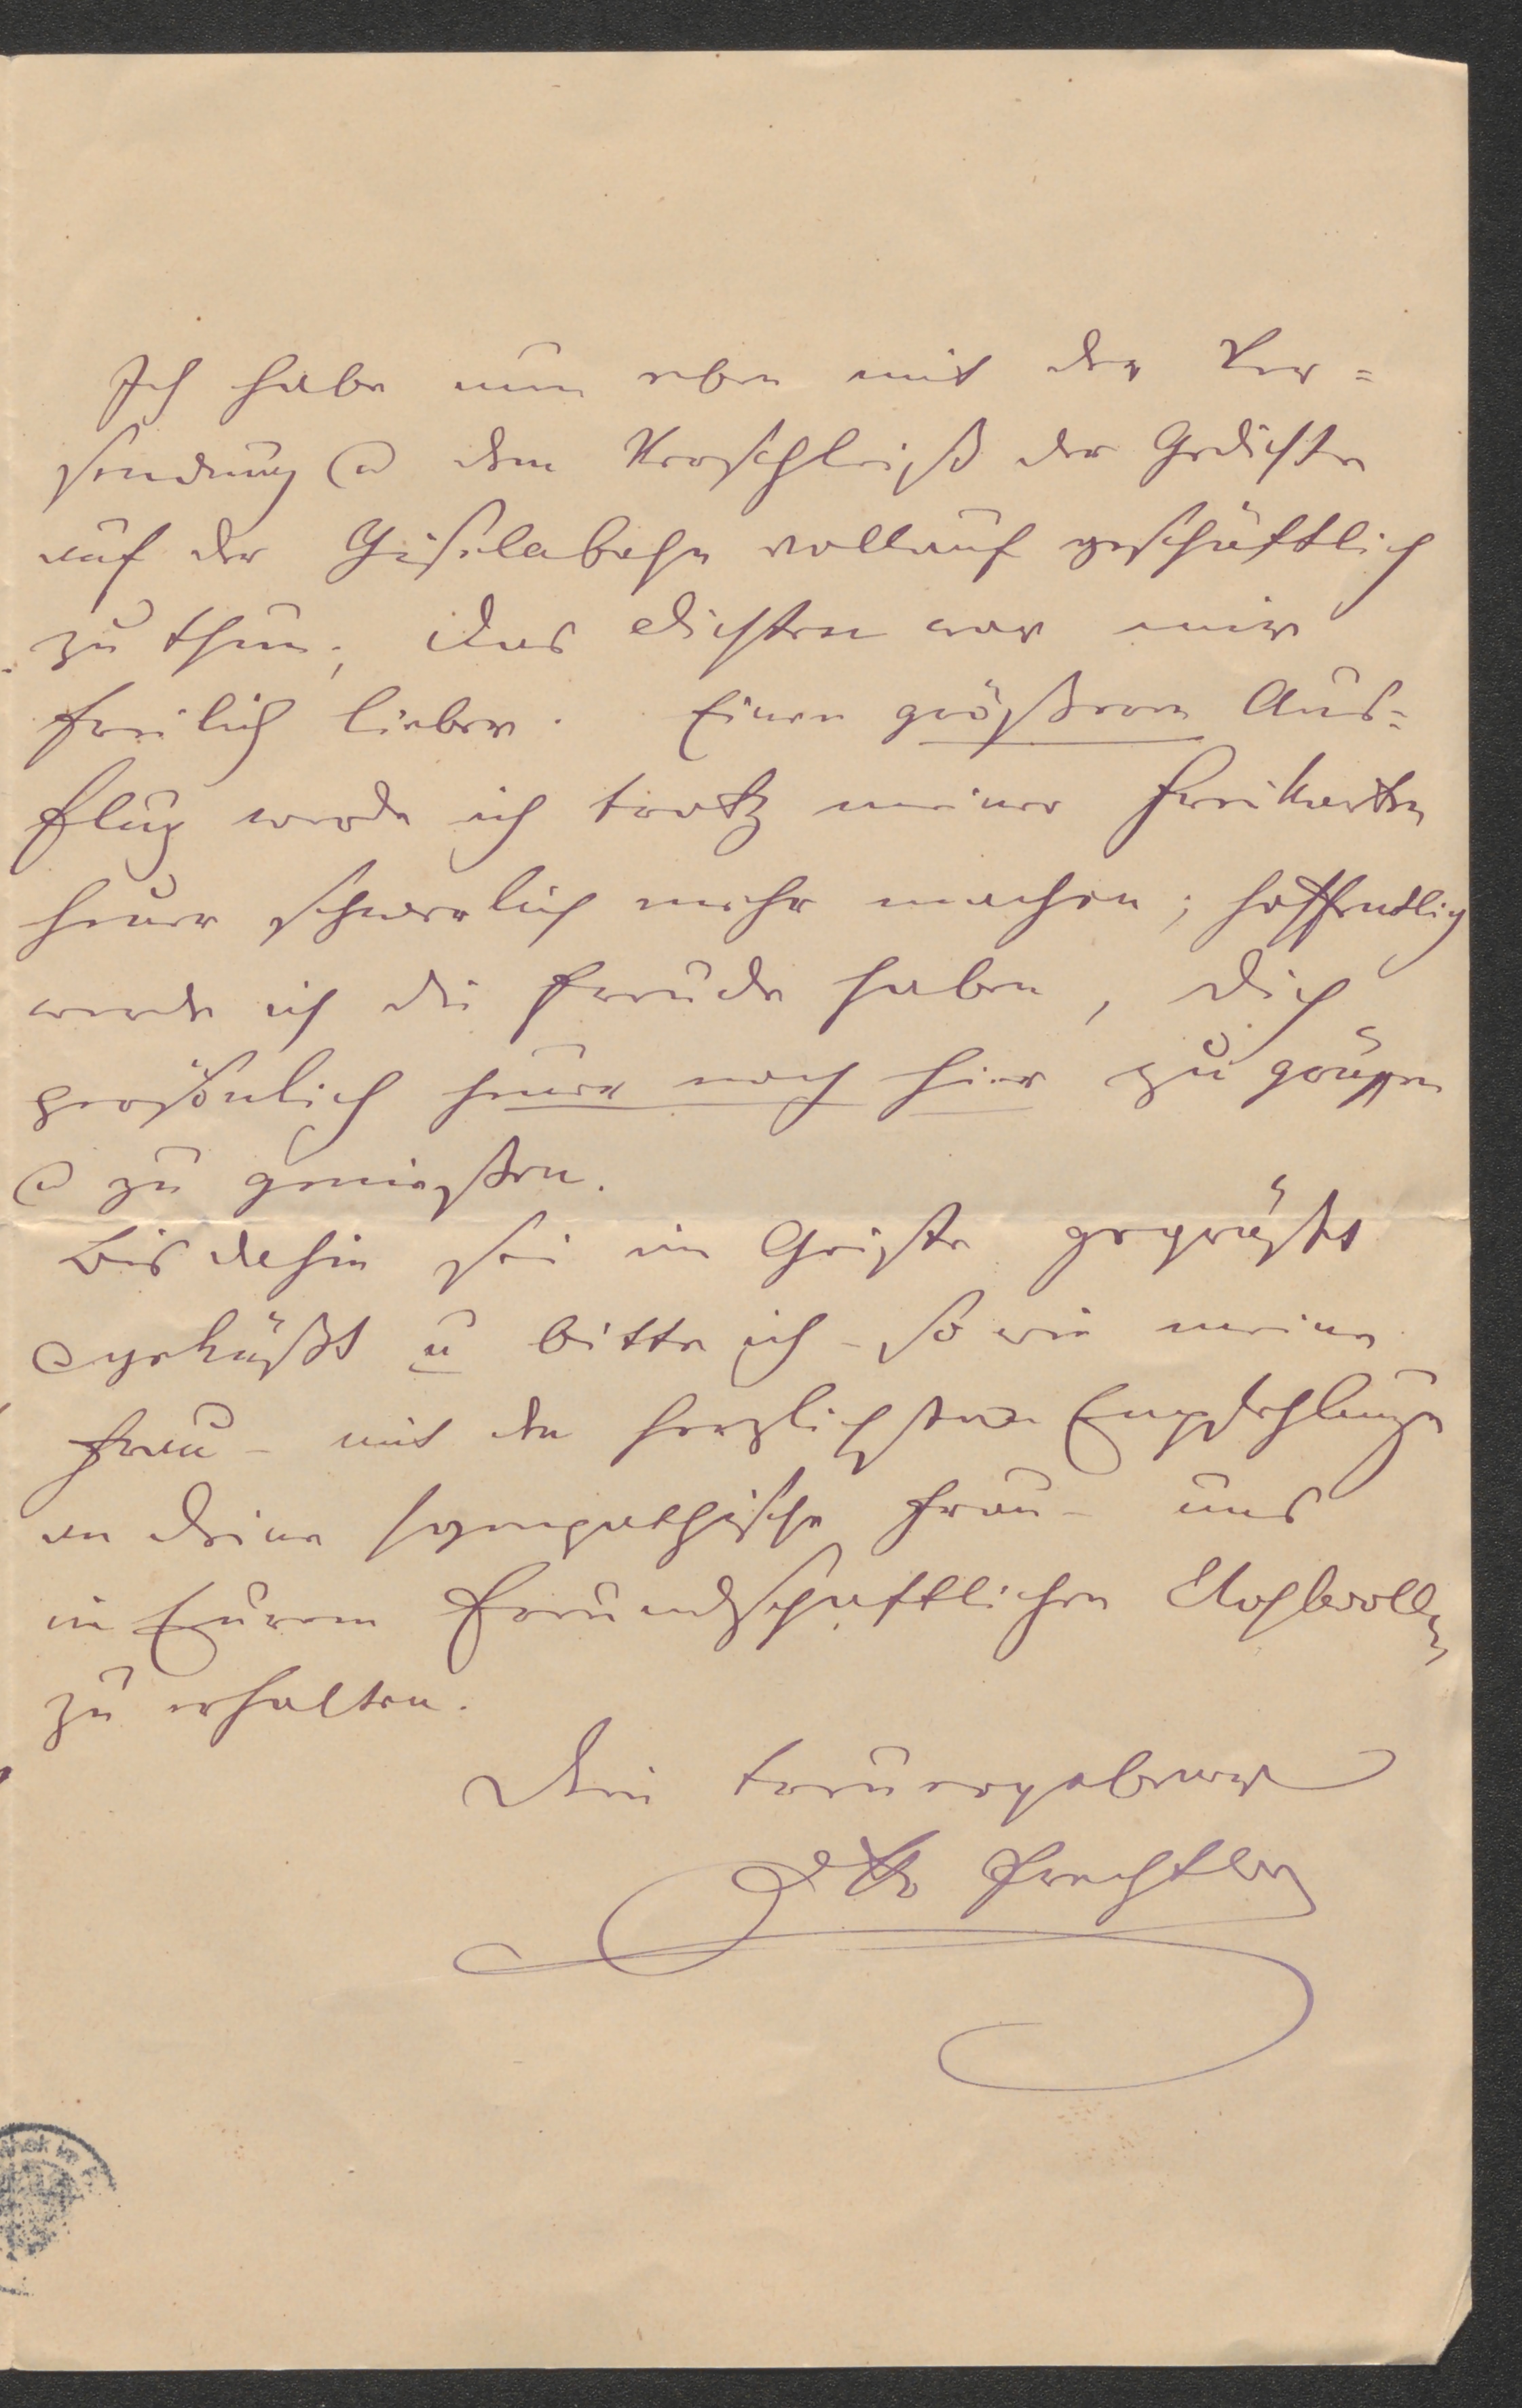 Ich habe nun eben mit der Ver=
sendung u dem Verschleiß der Gedichte
auf der Giselabahn vollauf geschäftlich
zu thun; das Dichten war mir
freilich lieber. Einen größeren Aus=
flug werde ich trotz meiner Freikarten
heuer schwerlich mehr machen; hoffentlich
werde ich die Freude haben, Dich
persönlich heuer noch hier zu grüßen
u zu genießen.
Bis dahin sei im Geiste gegrüßt
u geküßt u bitte ich – so wie meine
Frau – mit den herzlichsten Empfehlungen
an Deine sympathische Frau – uns
in Eurem freundschaftlichen Wohlwollen
zu erhalten.
Dein treuergebener
Otto Prechtler